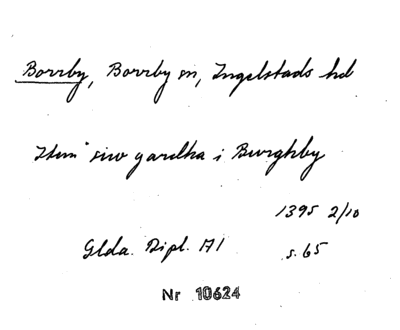 Borrby, Borrby sn, Ingelstads hd
Item siw gardha i Burghby
1395 2/10
Glda. Dipl. A1 s. 65
Nr 10624